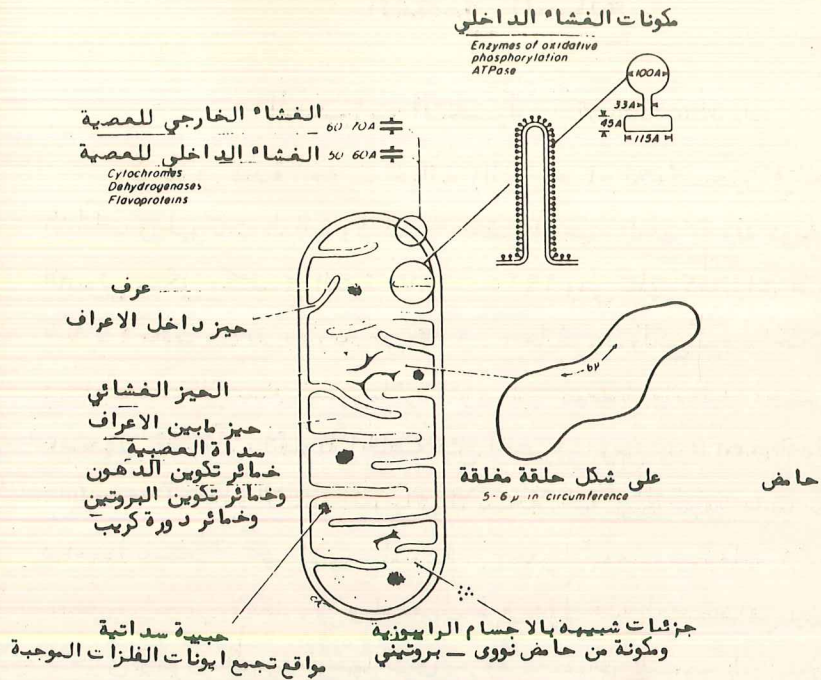 مكونات الغشاء الداخلي
Enzymes of oxidative
phosphorylation
ATPase
100A
33A
45A
115A
الغشاء الخارجي للعصية 60 70A
الغشاء الداخلي للعصية 50 60A
Cytochromes
Dehydrogenases
Flavoproteins
عرف
حيز داخل الاعراف
الحيز الغشائي
حيز مابين الاعراف
سداة العصبية
خمائر تكوين الدهون
وخمائر تكوين البروتين
وخمائر دورة كريب
6μ
على شكل حلقة مغلقة
حامض
5-6 μ in circumference
حبيبة سداتية
مواقع تجمع ايونات الفلزات الموجبة
جزئات شبيهه بالاجسام الرايبوزية
ومكونة من حامض نووى – بروتيني